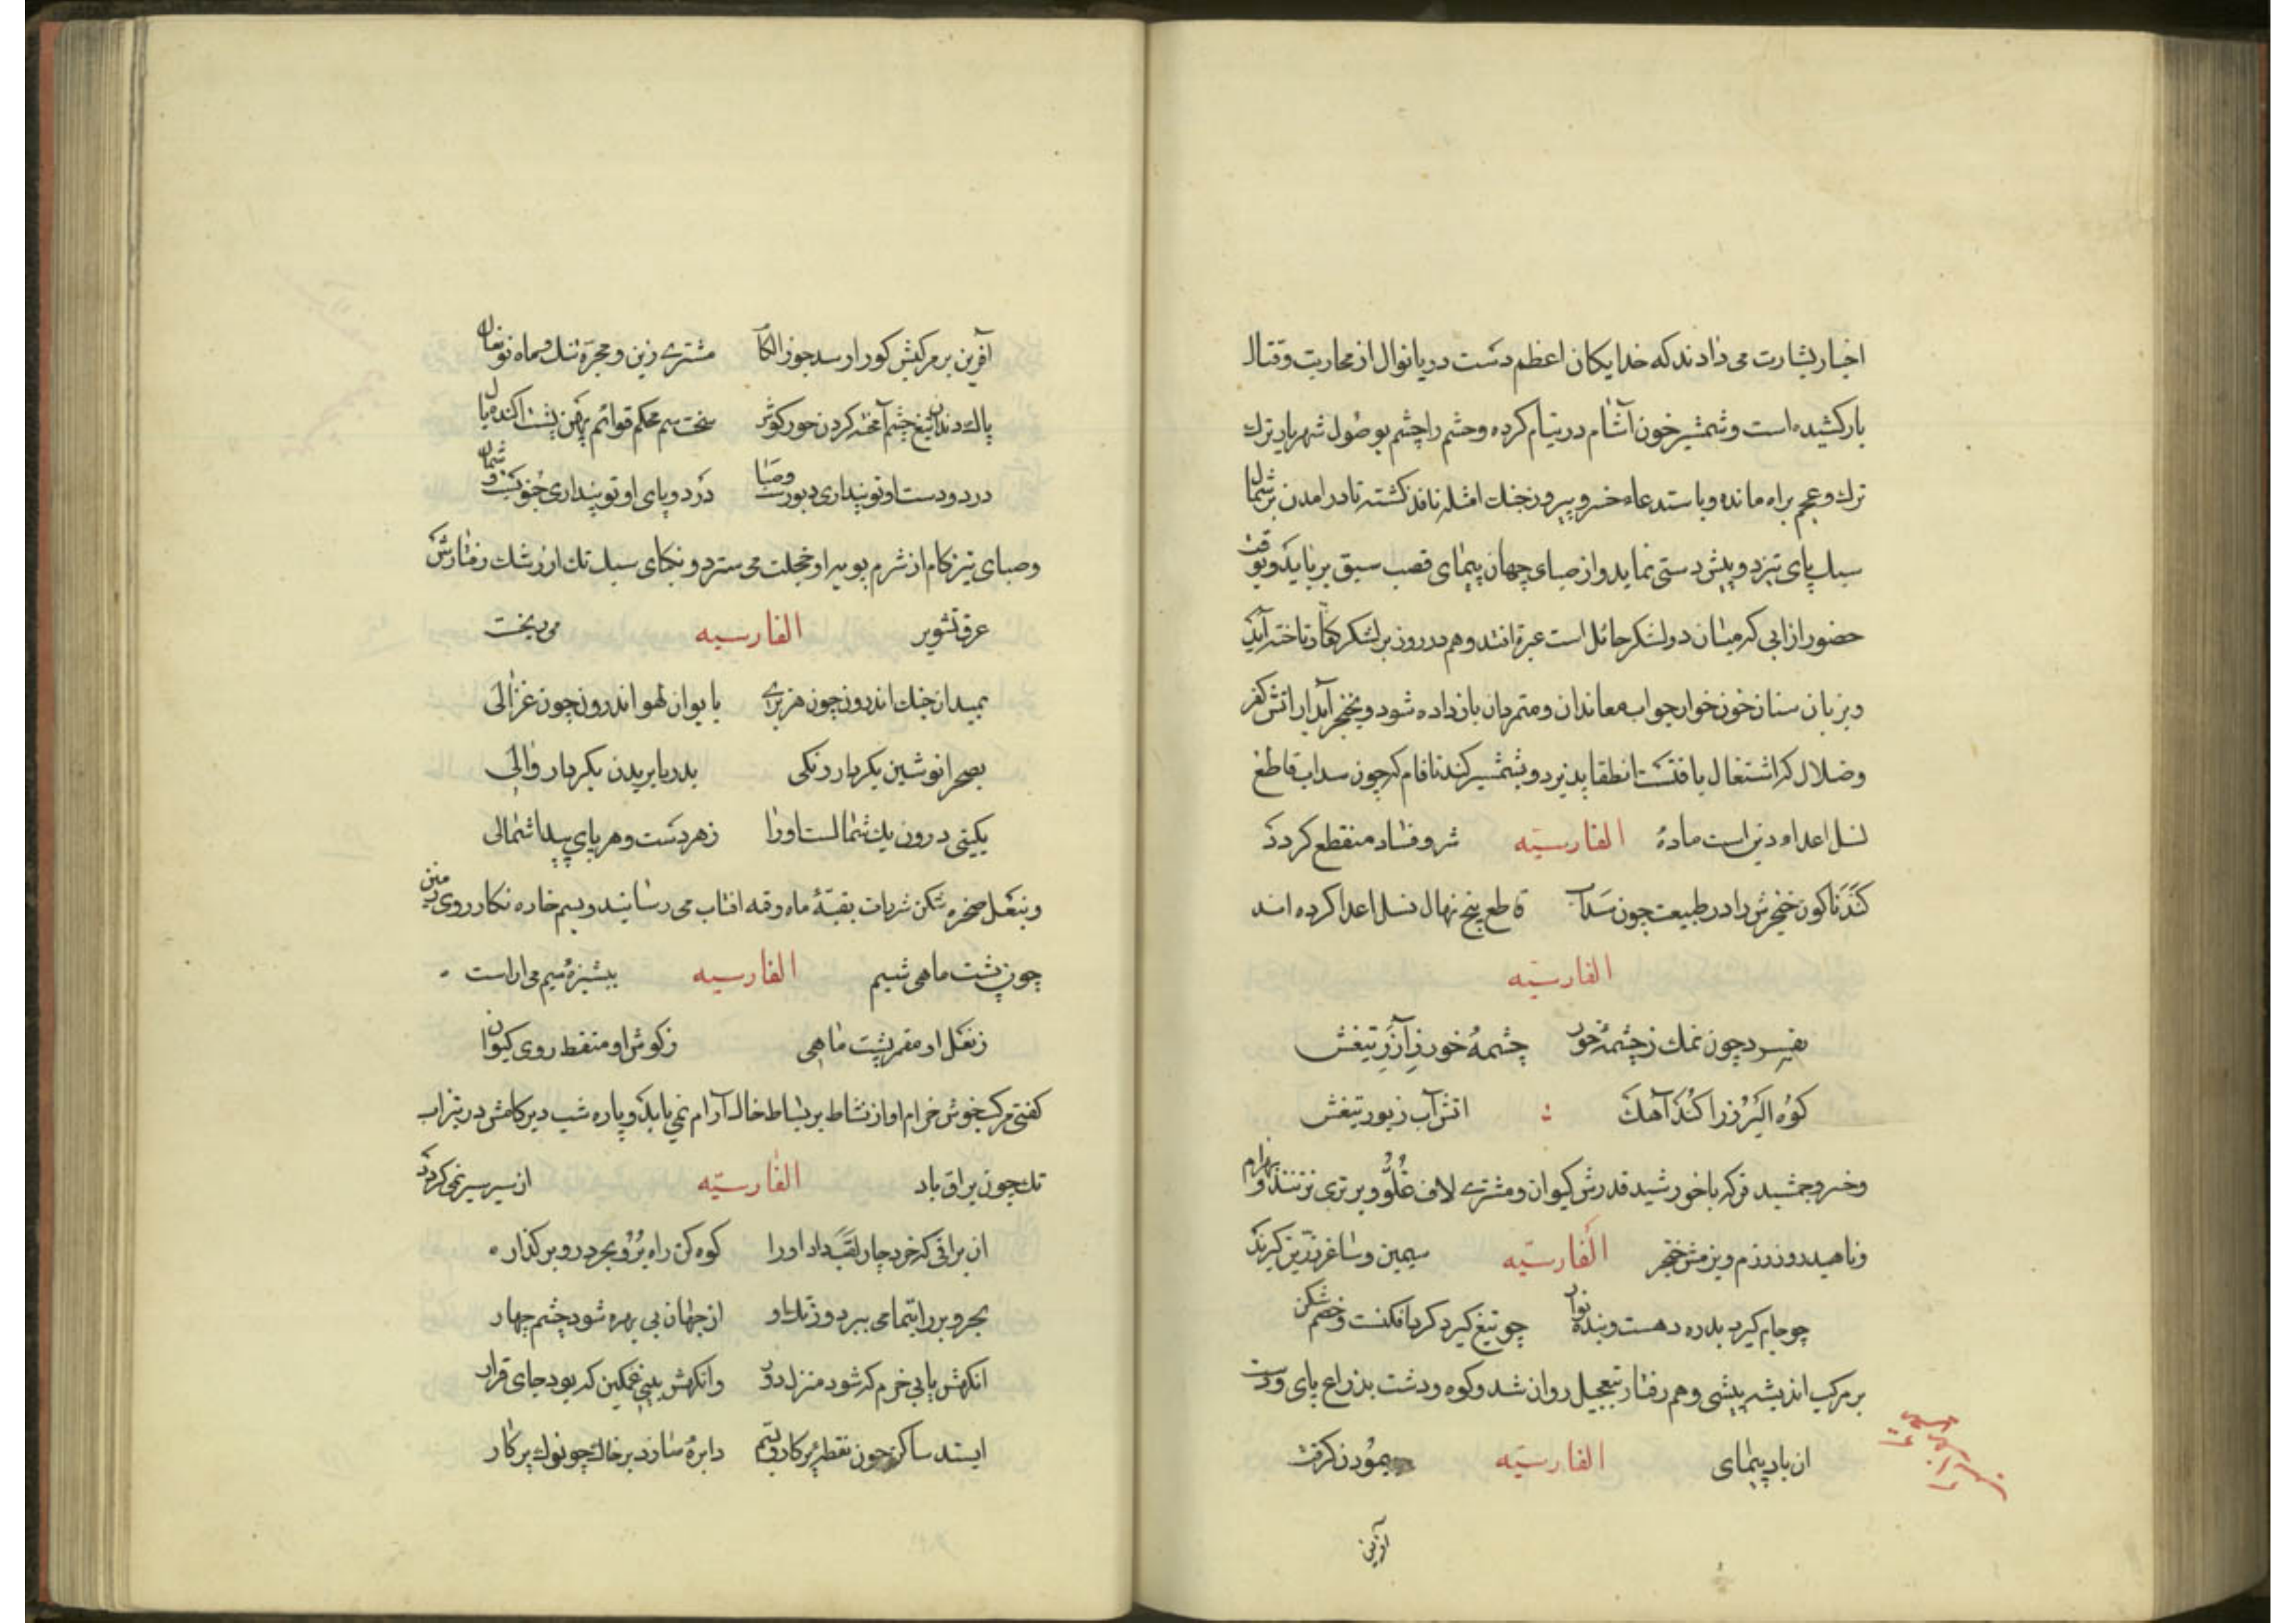 اخبار بشارت می دادند که خدایکان اعظم دست دریا نوال از محاربت و قتال
باز کشیده است و شمشیر خون آشام در نیام کرده و حشم را چشم بوصول شهریار ترک
ترک و عجم براه مانده و باستدعاء خسرو پیروز جنک امثله نافذ کشته تا در امدن بر شمال
سبک پای تیزدو پیش دستی نماید و از صبای جهان پیمای قصب سبق برباید و بوقت
حضور از ابی که میان دو لشکر حائل است عبره افتد و هم در روز بر لشکر کفار تاختن آید
و بزبان سنان خون خوار جواب معاندان و متمردان باز داده شود و بخنجر آبدار اتش کفر
و ضلال که اشتعال یافتست انطفا پذیرد و بشمشیر کندنا فام که چون سداب قاطع
نسل اعداء دین است مادهٔ الفارسیّه شر و فساد منقطع کردد
کندناکون خنجرش را در طبیعت چون سداب قاطع بیخ نهال نسل اعدا کرده اند
الفارسیّه
بفسرد چون نمک ز چشمهٔ خور چشمهٔ خور ز آزر تیغش
کوه البرز را کند آهک اتش آب زیور تیغش
و خسرو جمشید فر که با خورشید قدرش کیوان و مشتری لاف علوّ و برتری نزنند و بهرام
و ناهید روز رزم و بزمش خنجر الفارسیّه سیمین و ساغر زرین کیرند
چو جام کیرد بدره دهست و بنده نواز چو تیغ کیرد کرد افکنست و خصم شکن
بر مرکب اندیشه پیشی وهم رفتار بتعجیل روان شد و کوه و دشت بذراع پای و دست
ان باد پیمای الفارسیّه پیمودن کرفت
آفرین
آفرین بر مرکبش کورا رسد جوزا لکام مشتری زین و مجره تنک و ماه نو نعال
پاک دندان تیغ چشم آمخته کردن خورکوش سخت سم محکم قوائم پهن پشت اکنده یال
در دو دست او تو پنداری دبورست و صبا در دو پای او تو پنداری جنوبست و شمال
و صبای تیز کام از شرم بویهٔ او خجلت می ستردو نکبای سبک تک از رشک رفتارش
عرق تشویر الفارسیه می ریخت
بمیدان جنک اندرون چون هزبری بایوان لهو اندرون چون غزالی
بصحرا نوشتن بکردار رنکی بدریا بریدن بکردار والی
بکیتی درون یک شمالست اورا ز هر دست و هر پای پیدا شمالی
و بنعل صخره شکن شرپات بقبّهٔ ماه و قمه افتاب می رسانید و بسم خاره نکار روی زمین
چون پشت ماهی شیم الفارسیه ببشیزهٔ سیم می اراست
ز نعل او مقمر پشت ماهی ز کوش او منقط روی کیوان
کفتی مرکب خوش خرام او از نشاط بر بساط خاک آرام نمی یابد و پاره شب دیر کامش در تیزاب
تک چون براق باد الفارسیّه از سیر سیر نمی کردد
ان براقی که خرد چار لقب داد اورا کوه کن راه بر و بحر در و بر کذار
بحر و بر را بتمامی ببرد وز تک او از جهان بی بهره شود چشم چهار
انکهش یابی خرم که شود منزل دور وانکهش بینی غمکین که بود جای قرار
ایستد ساکن چون نقطهٔ پرکار و بسم دایرهٔ سازد بر خاک چو نوک پرکار